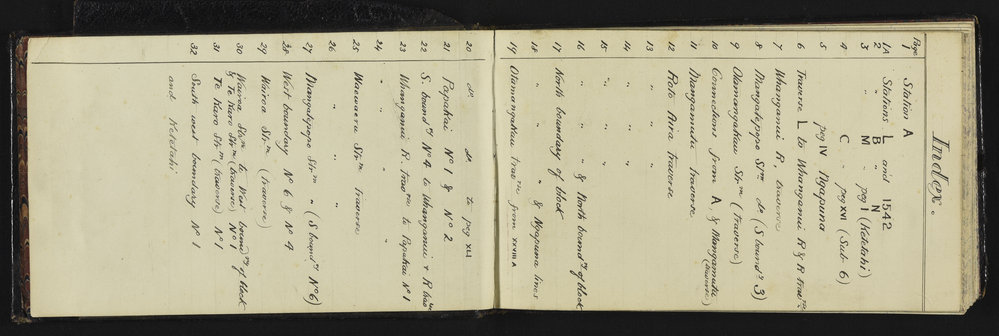 Index.
Page
1 Station A
1A Stations L and 1542
2 " B " N
3 " M " peg I (Ketetahi)
4 " C " peg XVI (Sub 6)
5 peg IV Ngapuna
6 Traverse L to Whanganui R & R Travse
7 Whanganui R. traverse
8 Mangatepopo Strm do (S boundy 3)
9 Otamangakau Strm (Traverse)
10 Connections from A & Mangamutu
(traverse)
11 Mangamutu traverse
12 Roto Aira Traverse
13 " " "
14 " " "
15 " " "
16 " " & North boundry of block
17 North boundary of block
18 " " " & Ngapuna lines
19 Otamangakau travse from XXVIII A
20 do do to peg XLI
21 Papakai No 1 & No 2
22 S. boundy No 4 to Whanganui & R travse
23 Whanganui R travse to Papakai No 1
24 " " "
25 Waewaeru Strm traverse
26 " " "
27 Mangatepopo Strm " (S boundy No 6)
28 West boundary No 6 & No 4
29 Wairoa Strm (traverse)
30 Wairoa Strm to West boundry of block
& Te Karo Strm (traverse) No 1
31 Te Karo Strm (traverse) No 1
32 South west boundary No 1
and Ketetahi